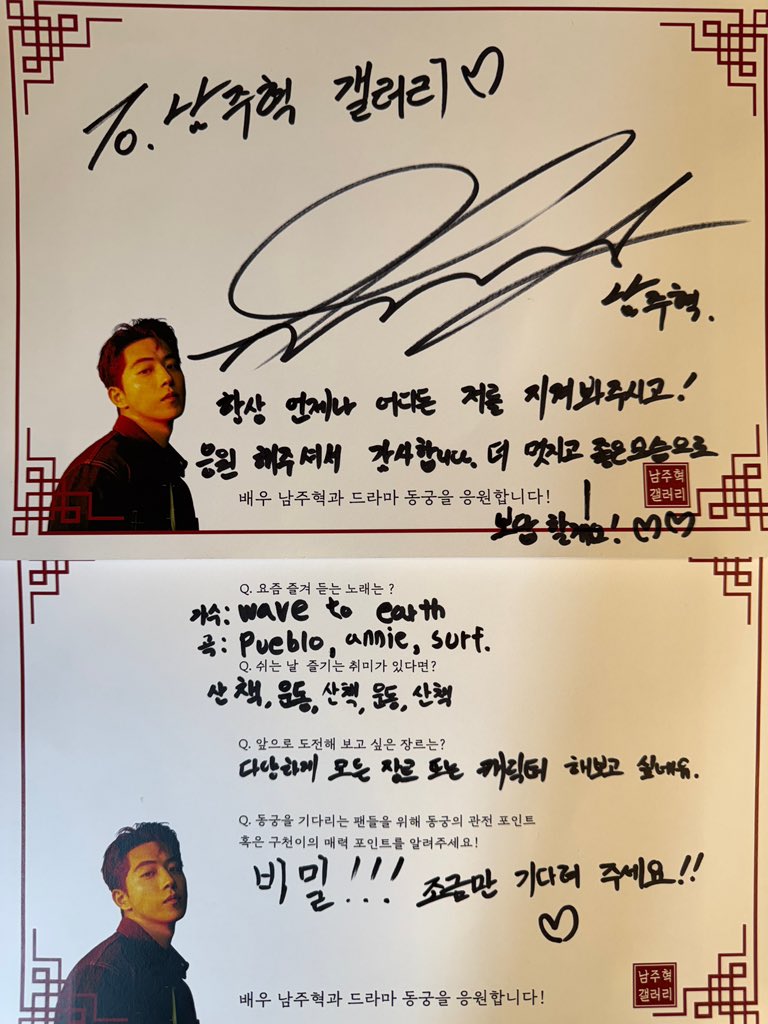 To. 남주혁 갤러리♡
남주혁.
항상 언제나 어디든 저를 지켜봐주시고!
응원 해주셔서 감사합니다. 더 멋지고 좋은모습으로
배우 남주혁과 드라마 동궁을 응원합니다!
남주혁
갤러리
보답 할게요! ♡♡
Q. 요즘 즐겨 듣는 노래는 ?
가수: wave to earth
곡: Pueblo, annie, surf.
Q. 쉬는 날 즐기는 취미가 있다면?
산책, 운동, 산책, 운동, 산책
Q. 앞으로 도전해 보고 싶은 장르는?
다양하게 모든 장르 또는 캐릭터 해보고 싶네유.
Q. 동궁을 기다리는 팬들을 위해 동궁의 관전 포인트
혹은 구천이의 매력 포인트를 알려주세요!
비밀!!! 조금만 기다려 주세요!!
♡
배우 남주혁과 드라마 동궁을 응원합니다!
남주혁
갤러리